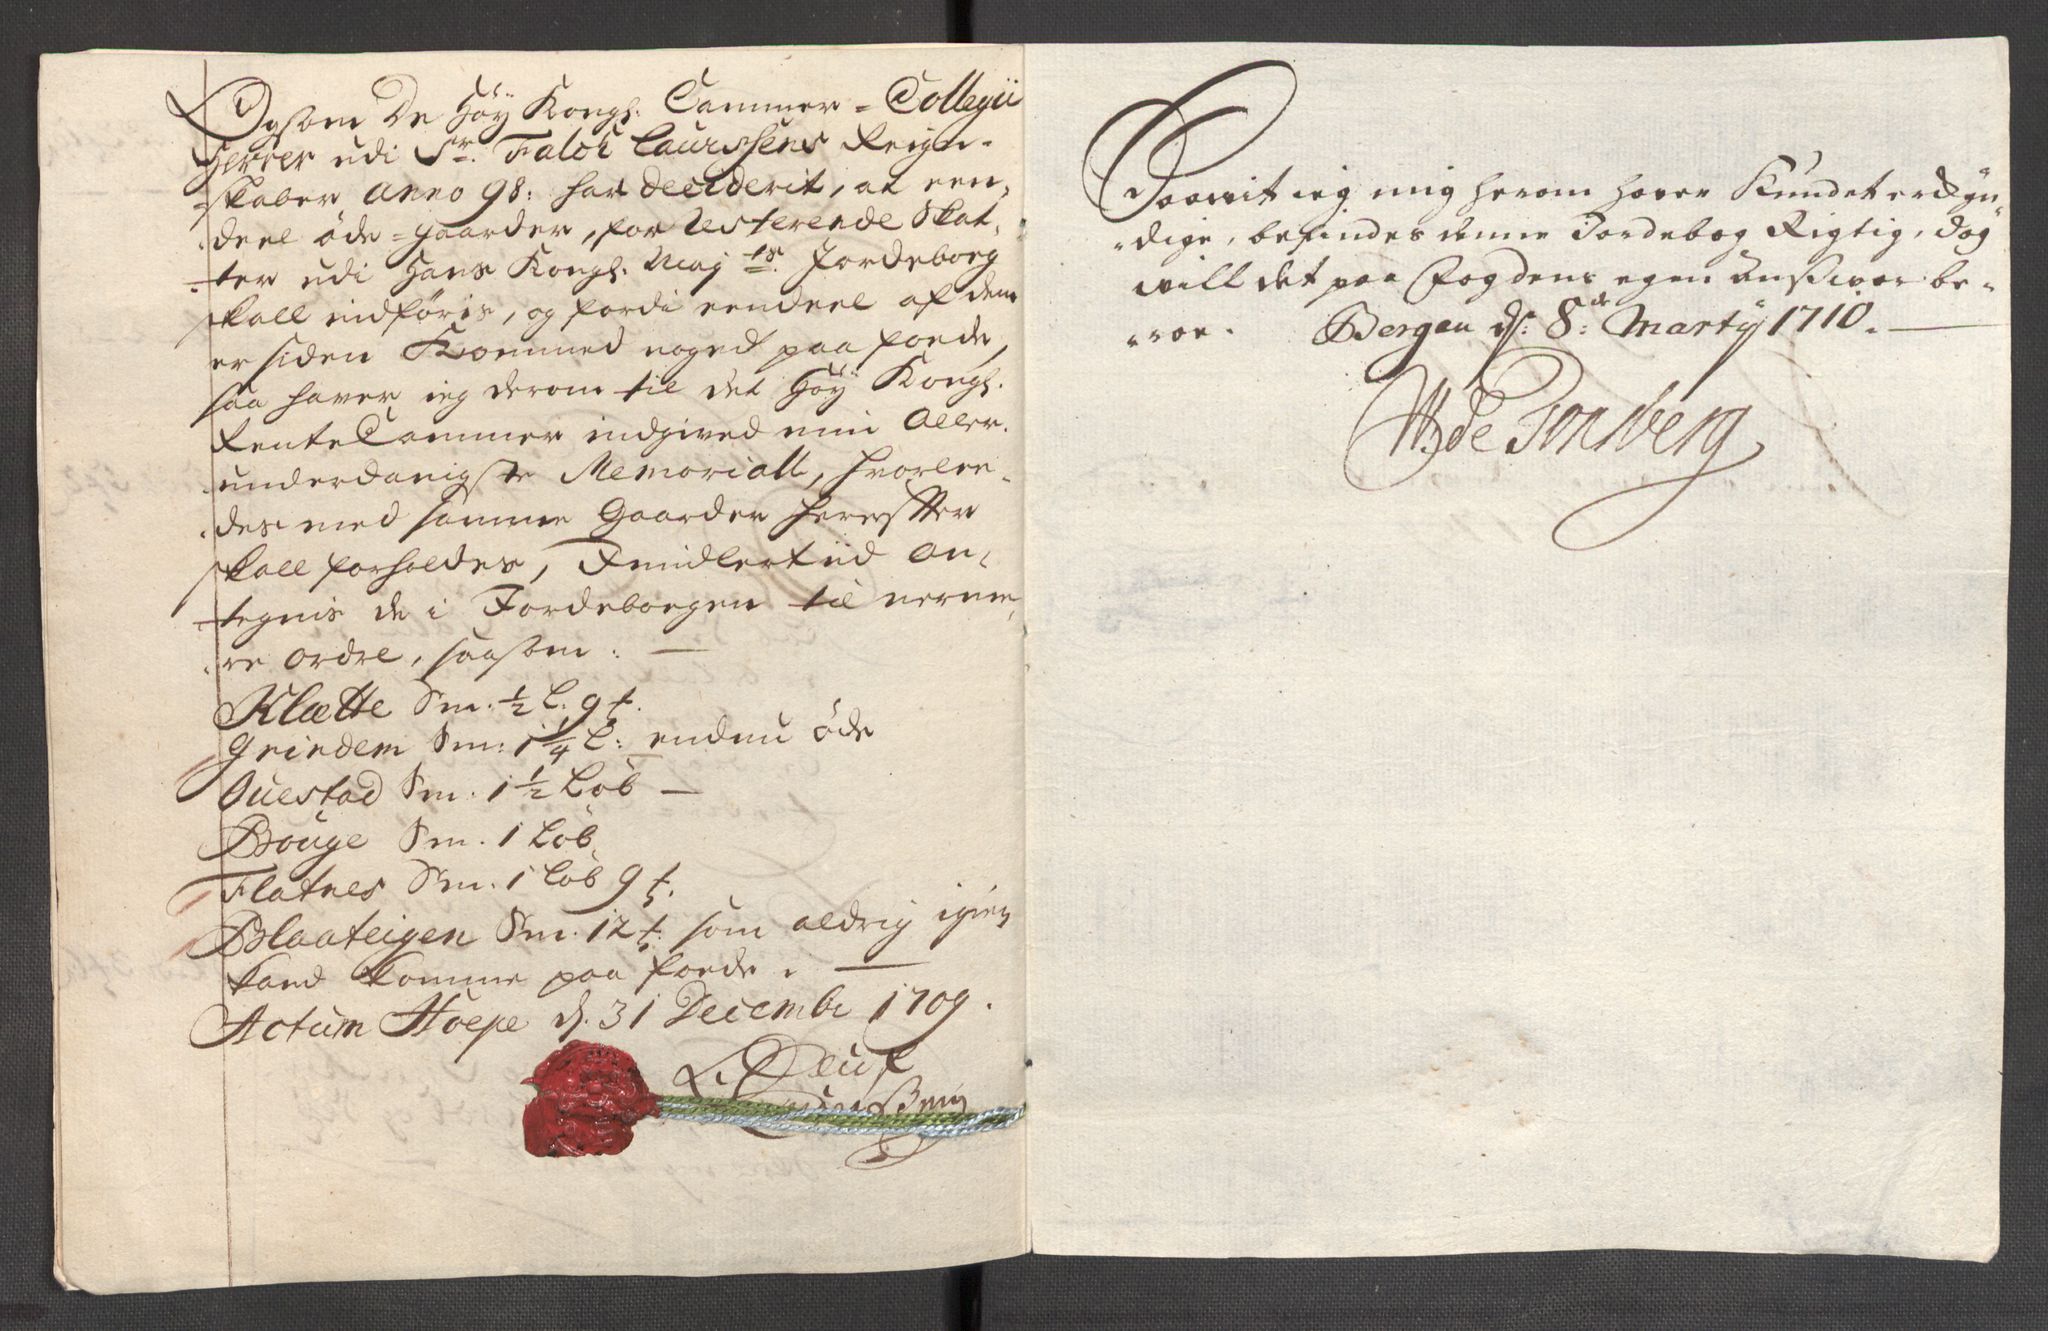 Ogsom De Høy Kongl. Cammer-Collegii
Herrer udi Sr. Falck Laurssens Reign-
skaber Anno 98: har decideret, at een-
deel øde-gaarder, for Resterende Skat-
ter udi Hans Kongl. Mayts. Jordeboeg
skall indføris, og fordi eendeel af dem
er siden Kommed noged paa foede,
saa haver ieg derom til det Høy Kongl.
Rente Cammer indgived min Aller-
underdanigste Memoriall, hvorlee-
des med samme Gaarder herefter
skall forholdes, Imidlertiid an-
tegnis de i Jordeboegen til nerme-
re ordre, saasom:
Klætte Sm. ½ L: 9 t.
Griindem Sm: 1¼ L: endnu øde
Questad Sm. 1½ Løb
Bouge Sm. 1 Løb
Flatnes Sm. 1 Løb 9 t.
Blaateigen Sm. 12 t. som aldrig igien
kand komme paa foede.
Actum Hoepe d. 31 Decembr 1709.
Saavit ieg mig herom haver Kundet erkyn-
dige, befindes denne Jordebog Rigtig, dog
will det paa Fogdens egen ansvar be-
roe. Bergen d: 8de Marty 1710.
W de Tonsberg